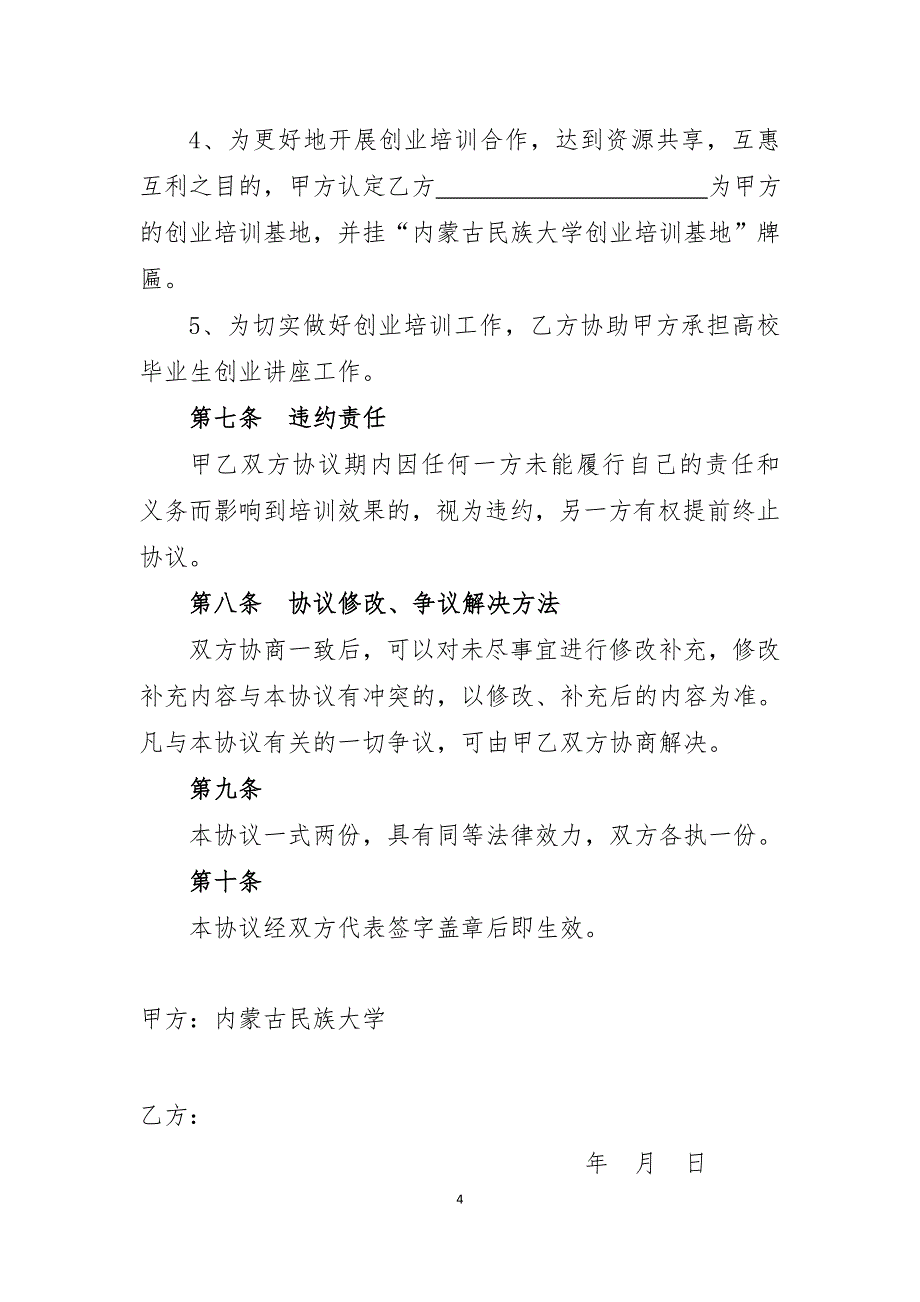 4、为更好地开展创业培训合作，达到资源共享，互惠
互利之目的，甲方认定乙方______________________为甲方
的创业培训基地，并挂“内蒙古民族大学创业培训基地”牌
匾。
5、为切实做好创业培训工作，乙方协助甲方承担高校
毕业生创业讲座工作。
第七条　违约责任
甲乙双方协议期内因任何一方未能履行自己的责任和
义务而影响到培训效果的，视为违约，另一方有权提前终止
协议。
第八条　协议修改、争议解决方法
双方协商一致后，可以对未尽事宜进行修改补充，修改
补充内容与本协议有冲突的，以修改、补充后的内容为准。
凡与本协议有关的一切争议，可由甲乙双方协商解决。
第九条
本协议一式两份，具有同等法律效力，双方各执一份。
第十条
本协议经双方代表签字盖章后即生效。
甲方：内蒙古民族大学
乙方：
年　月　日
4